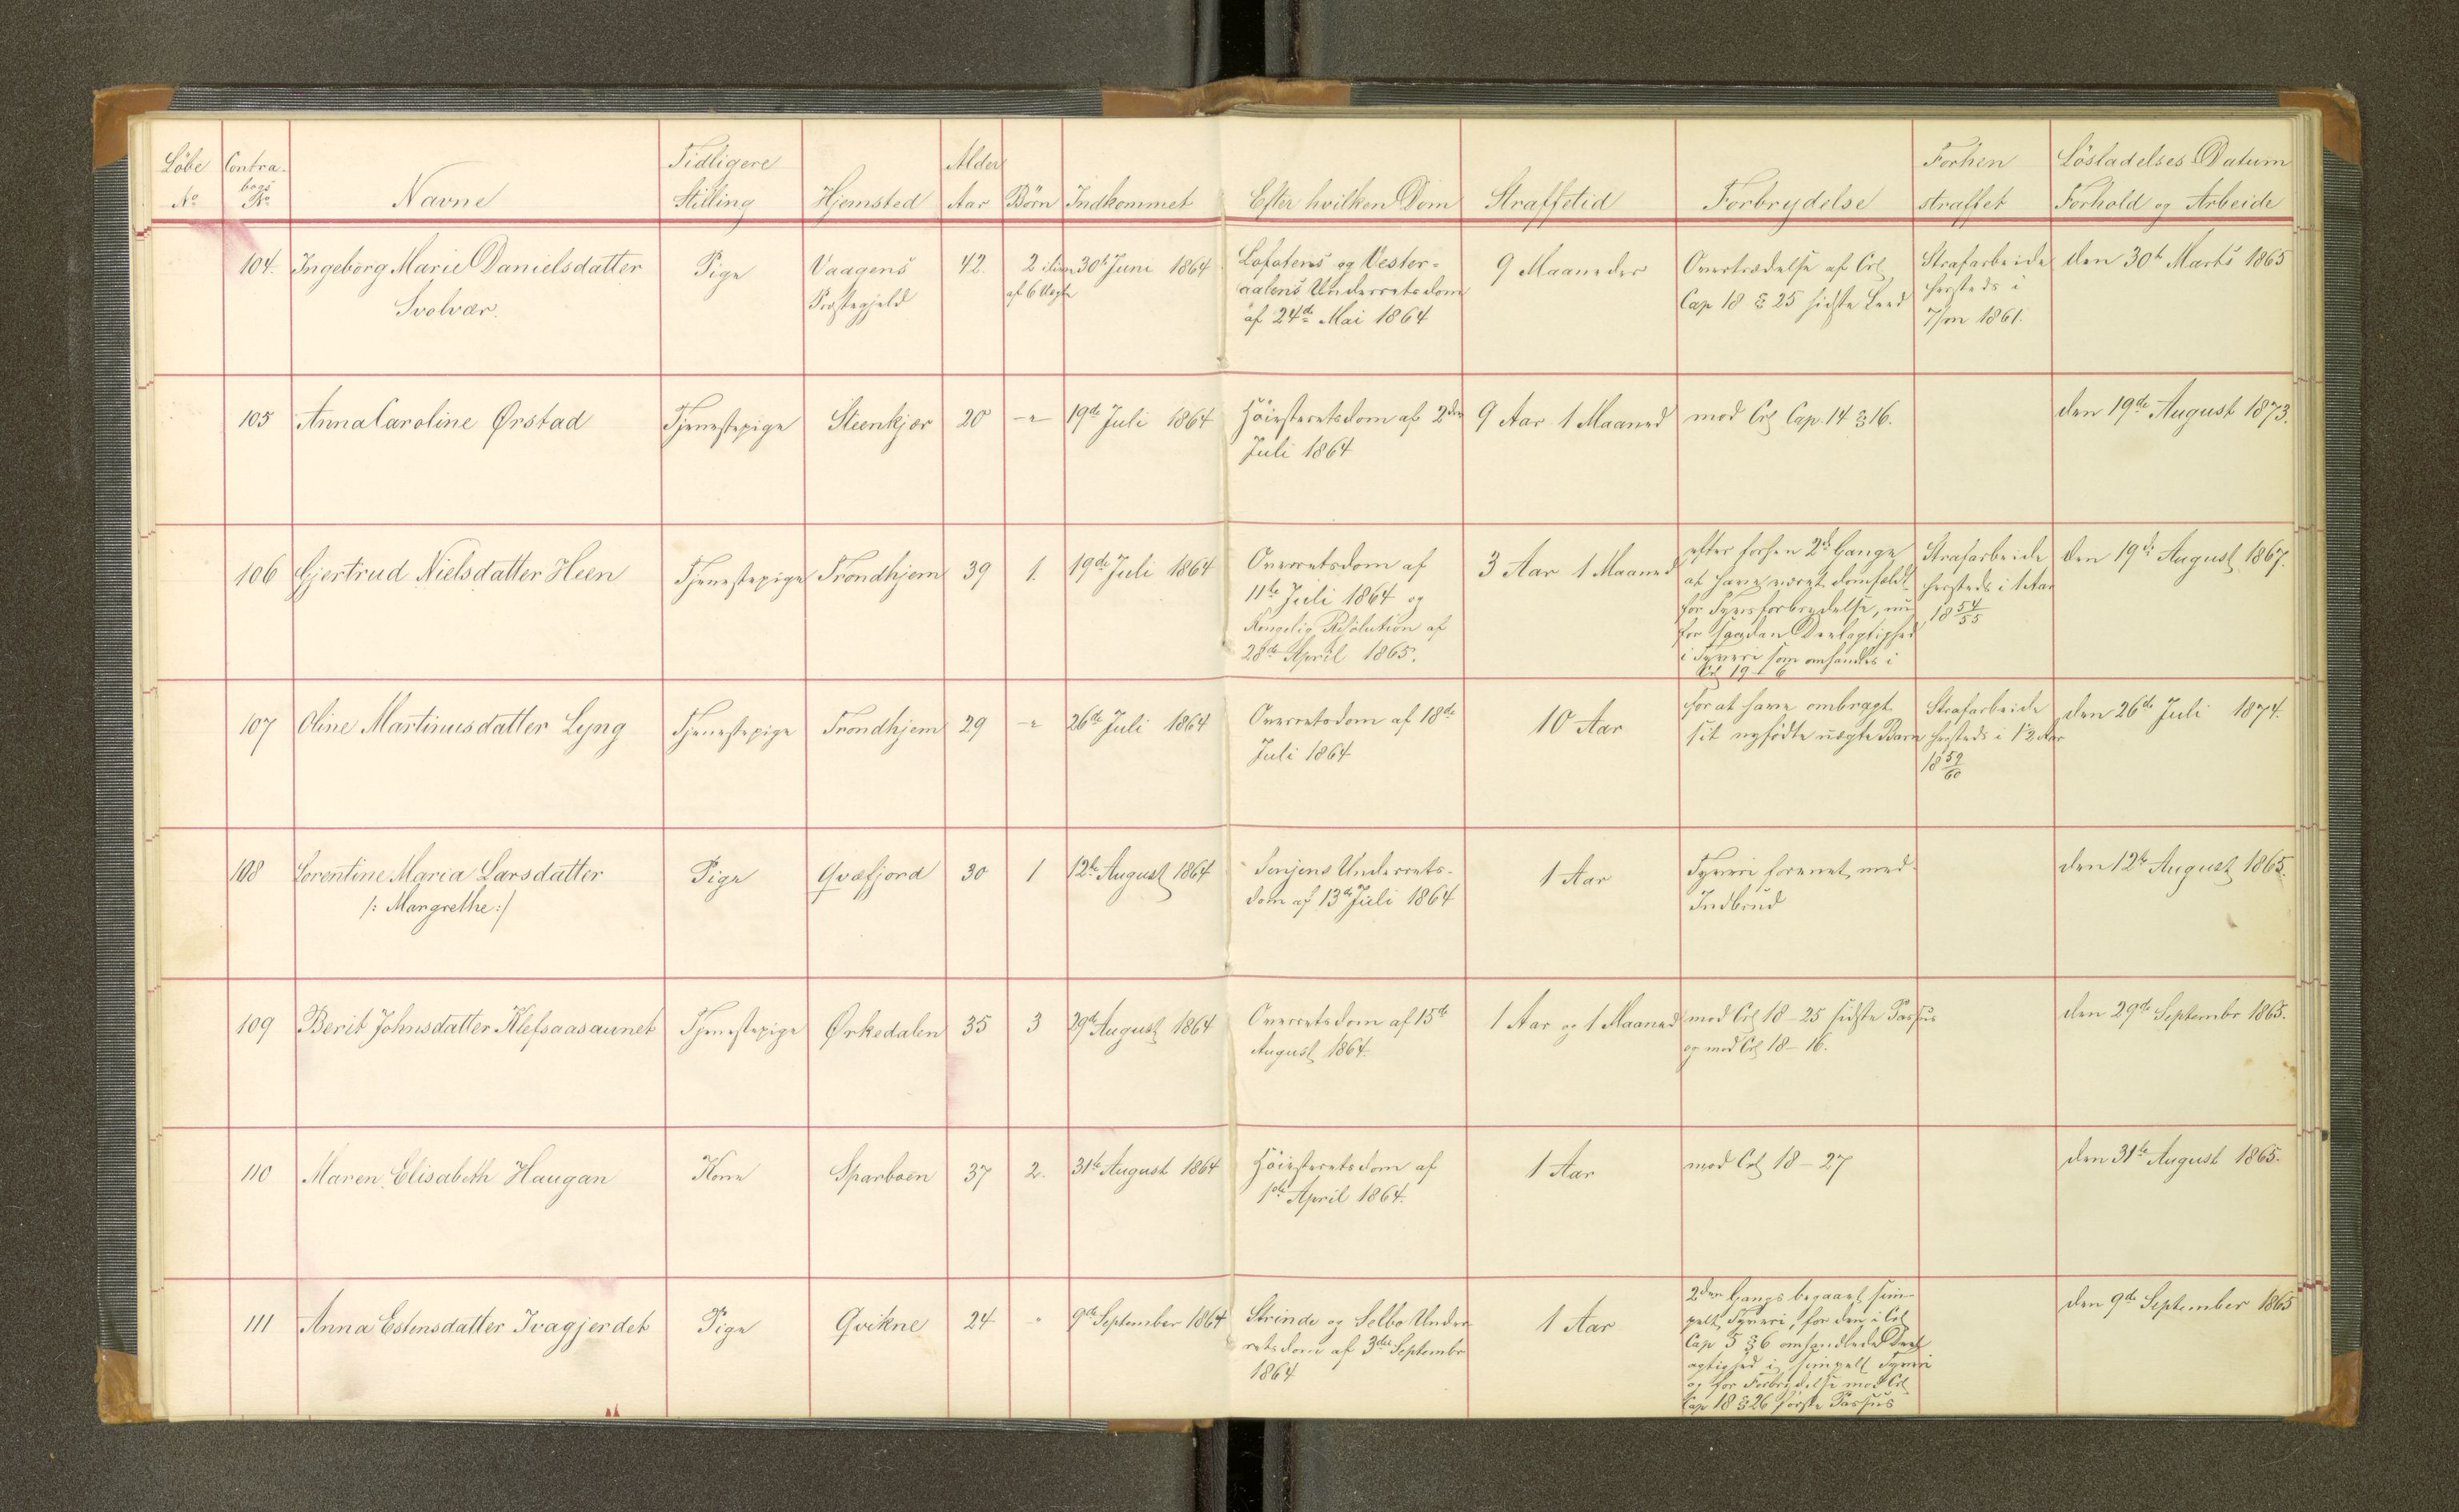 Löbe No
Contra-bogs No
Navne
Tidligere Stilling
Hjemsted
Alder Aar
Börn
Indkommet
Efter hvilken Dom
Straffetid
Forbrydelse
Forhen straffet
Lösladelses Datum
Forhold og Arbeide
104. Ingeborg Marie Danielsdatter
Svolvær.
Pige
Vaagens
Præstegjeld
42.
2 ilive
af 6 Uægte
30te Juni 1864
Lofotens og Vester-
aalens Underretsdom
af 24de Mai 1864
9 Maaneder
Overtrædelse af Crl
Cap 18 § 25 sidste Leed
Strafarbeide
hersteds i
7/m 1861.
den 30te Marts 1865
105 Anna Caroline Ørstad
Tjenestepige
Steenkjær
20
-"-
19de Juli 1864
Höiesteretsdom af 2den
Juli 1864
9 Aar 1 Maaned
mod Crl Cap. 14 § 16.
den 19de August 1873.
106 Gjertrud Nielsdatter Heen
Tjenestepige
Trondhjem
39
1.
19de Juli 1864
Overretsdom af
11te Juli 1864 og
Kongelig Resolution af
28de April 1865.
3 Aar 1 Maaned
efter forhen 2de Gange
at have været domfældt
for Tyvsforbrydelse, nu
for saadan Deelagtighed
i Tyveri som omhandles i
Crl 19 - 6
Strafarbeide
hersteds i 1 Aar
18 54/55
den 19de August 1867.
107 Oline Martinusdatter Lyng
Tjenestepige
Trondhjem
29
-"
26de Juli 1864
Overretsdom af 18de
Juli 1864
10 Aar
for at have ombragt
sit nyfödte uægte Barn
Strafarbeide
hersteds i 1½ Aar
18 59/60
den 26de Juli 1874.
108 Lorentine Maria Larsdatter
/: Margrethe :/
Pige
Qvæfjord
30
1
12te August 1864
Senjens Underrets-
dom af 13de Juli 1864
1 Aar
Tyveri forenet med
Indbrud
den 12te August 1865.
109 Berit Johnsdatter Klefsaasaunet
Tjenestepige
Ørkedalen
35
3
29de August 1864
Overretsdom af 15de
August 1864.
1 Aar og 1 Maaned
mod Crl 18 - 25 sidste Passus
og mod Crl 18 - 16.
den 29de Septembr 1865.
110 Maren Elisabeth Haugan
Kone
Sparboen
37
2.
31te August 1864
Höiesteretsdom af
1ste April 1864.
1 Aar
mod Crl 18 - 27
den 31te August 1865.
111 Anna Estensdatter Ivagjerdet
Pige
Qvikne
24
"
9de September 1864
Strinde og Selbo Under
retsdom af 3die Septembr
1864
1 Aar
2den Gangs begaaet sim-
pelt Tyveri, for den i Crl
Cap 5 § 6 omhandlede Deel
agtighed i simpelt Tyveri
og for Forbrydelse mod Crl
Cap 18 § 26 förste Passus
den 9de September 1865